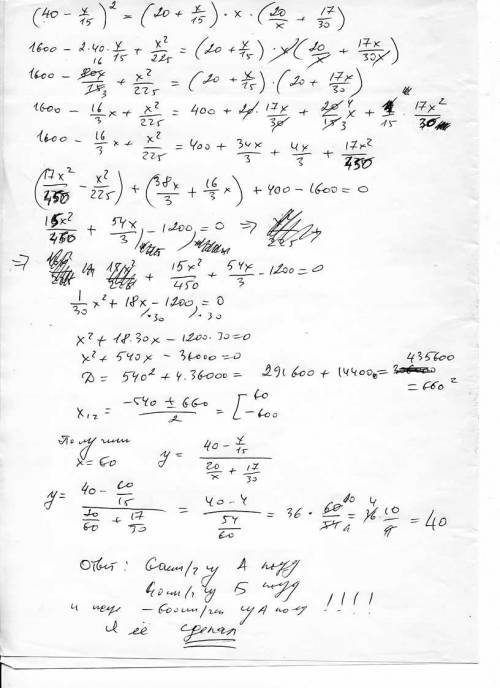 (40 - x/15)² = (20 + x/15) · x · (20/x + 17/30)
1600 - 2·40·x/15 + x²/225 = (20 + x/15) · x (20/x + 17x/30x)
1600 - 80x/15 + x²/225 = (20 + x/15) · (20 + 17x/30)
1600 - 16/3 x + x²/225 = 400 + 20·17x/30 + 20/15 x + x/15 · 17x²/30
1600 - 16/3 x + x²/225 = 400 + 34x/3 + 4x/3 + 17x²/450
(17x²/450 - x²/225) + (38x/3 + 16/3 x) + 400 - 1600 = 0
15x²/450 + 54x/3 - 1200 = 0 ⇒
⇒ 15x²/450 + 54x/3 - 1200 = 0
1/30 x² + 18x - 1200 = 0
·30 ·30
x² + 18·30x - 1200·30 = 0
x² + 540x - 36000 = 0
D = 540² + 4·36000 = 291600 + 144000 = 435600 = 660²
x₁₂ = (-540 ± 660)/2 = [60 -600
Получим
x = 60 y = (40 - x/15)/(20/x + 17/30)
y = (40 - 60/15)/(20/60 + 17/30) = (40 - 4)/(54/60) = 36 · 60/54 = 36 · 10/9 = 40
Ответ: А
Б
и - А !!!!
Я её сделал